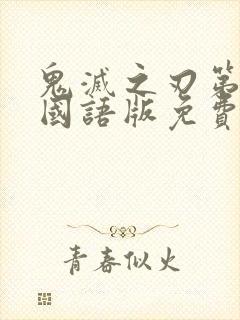 鬼滅之刃第
國語版免費
青春似火